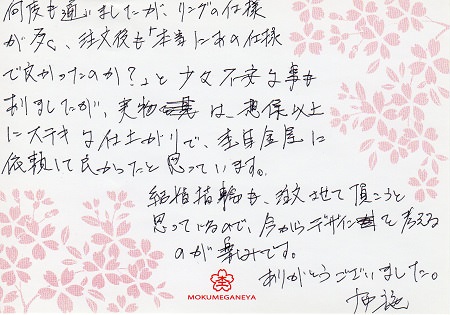 何度も通いましたが、リングの仕様
が多く、注文後も「本当にあの仕様
で良かったのか?」と少々不安な事も
ありましたが、実物は、想像以上
にステキな仕上がりで、杢目金屋に
依頼して良かったと思っています。
結婚指輪も、注文させて頂こうと
思っているので、今からデザインを考える
のが楽しみです。
ありがとうございました。
杢
MOKUMEGANEYA